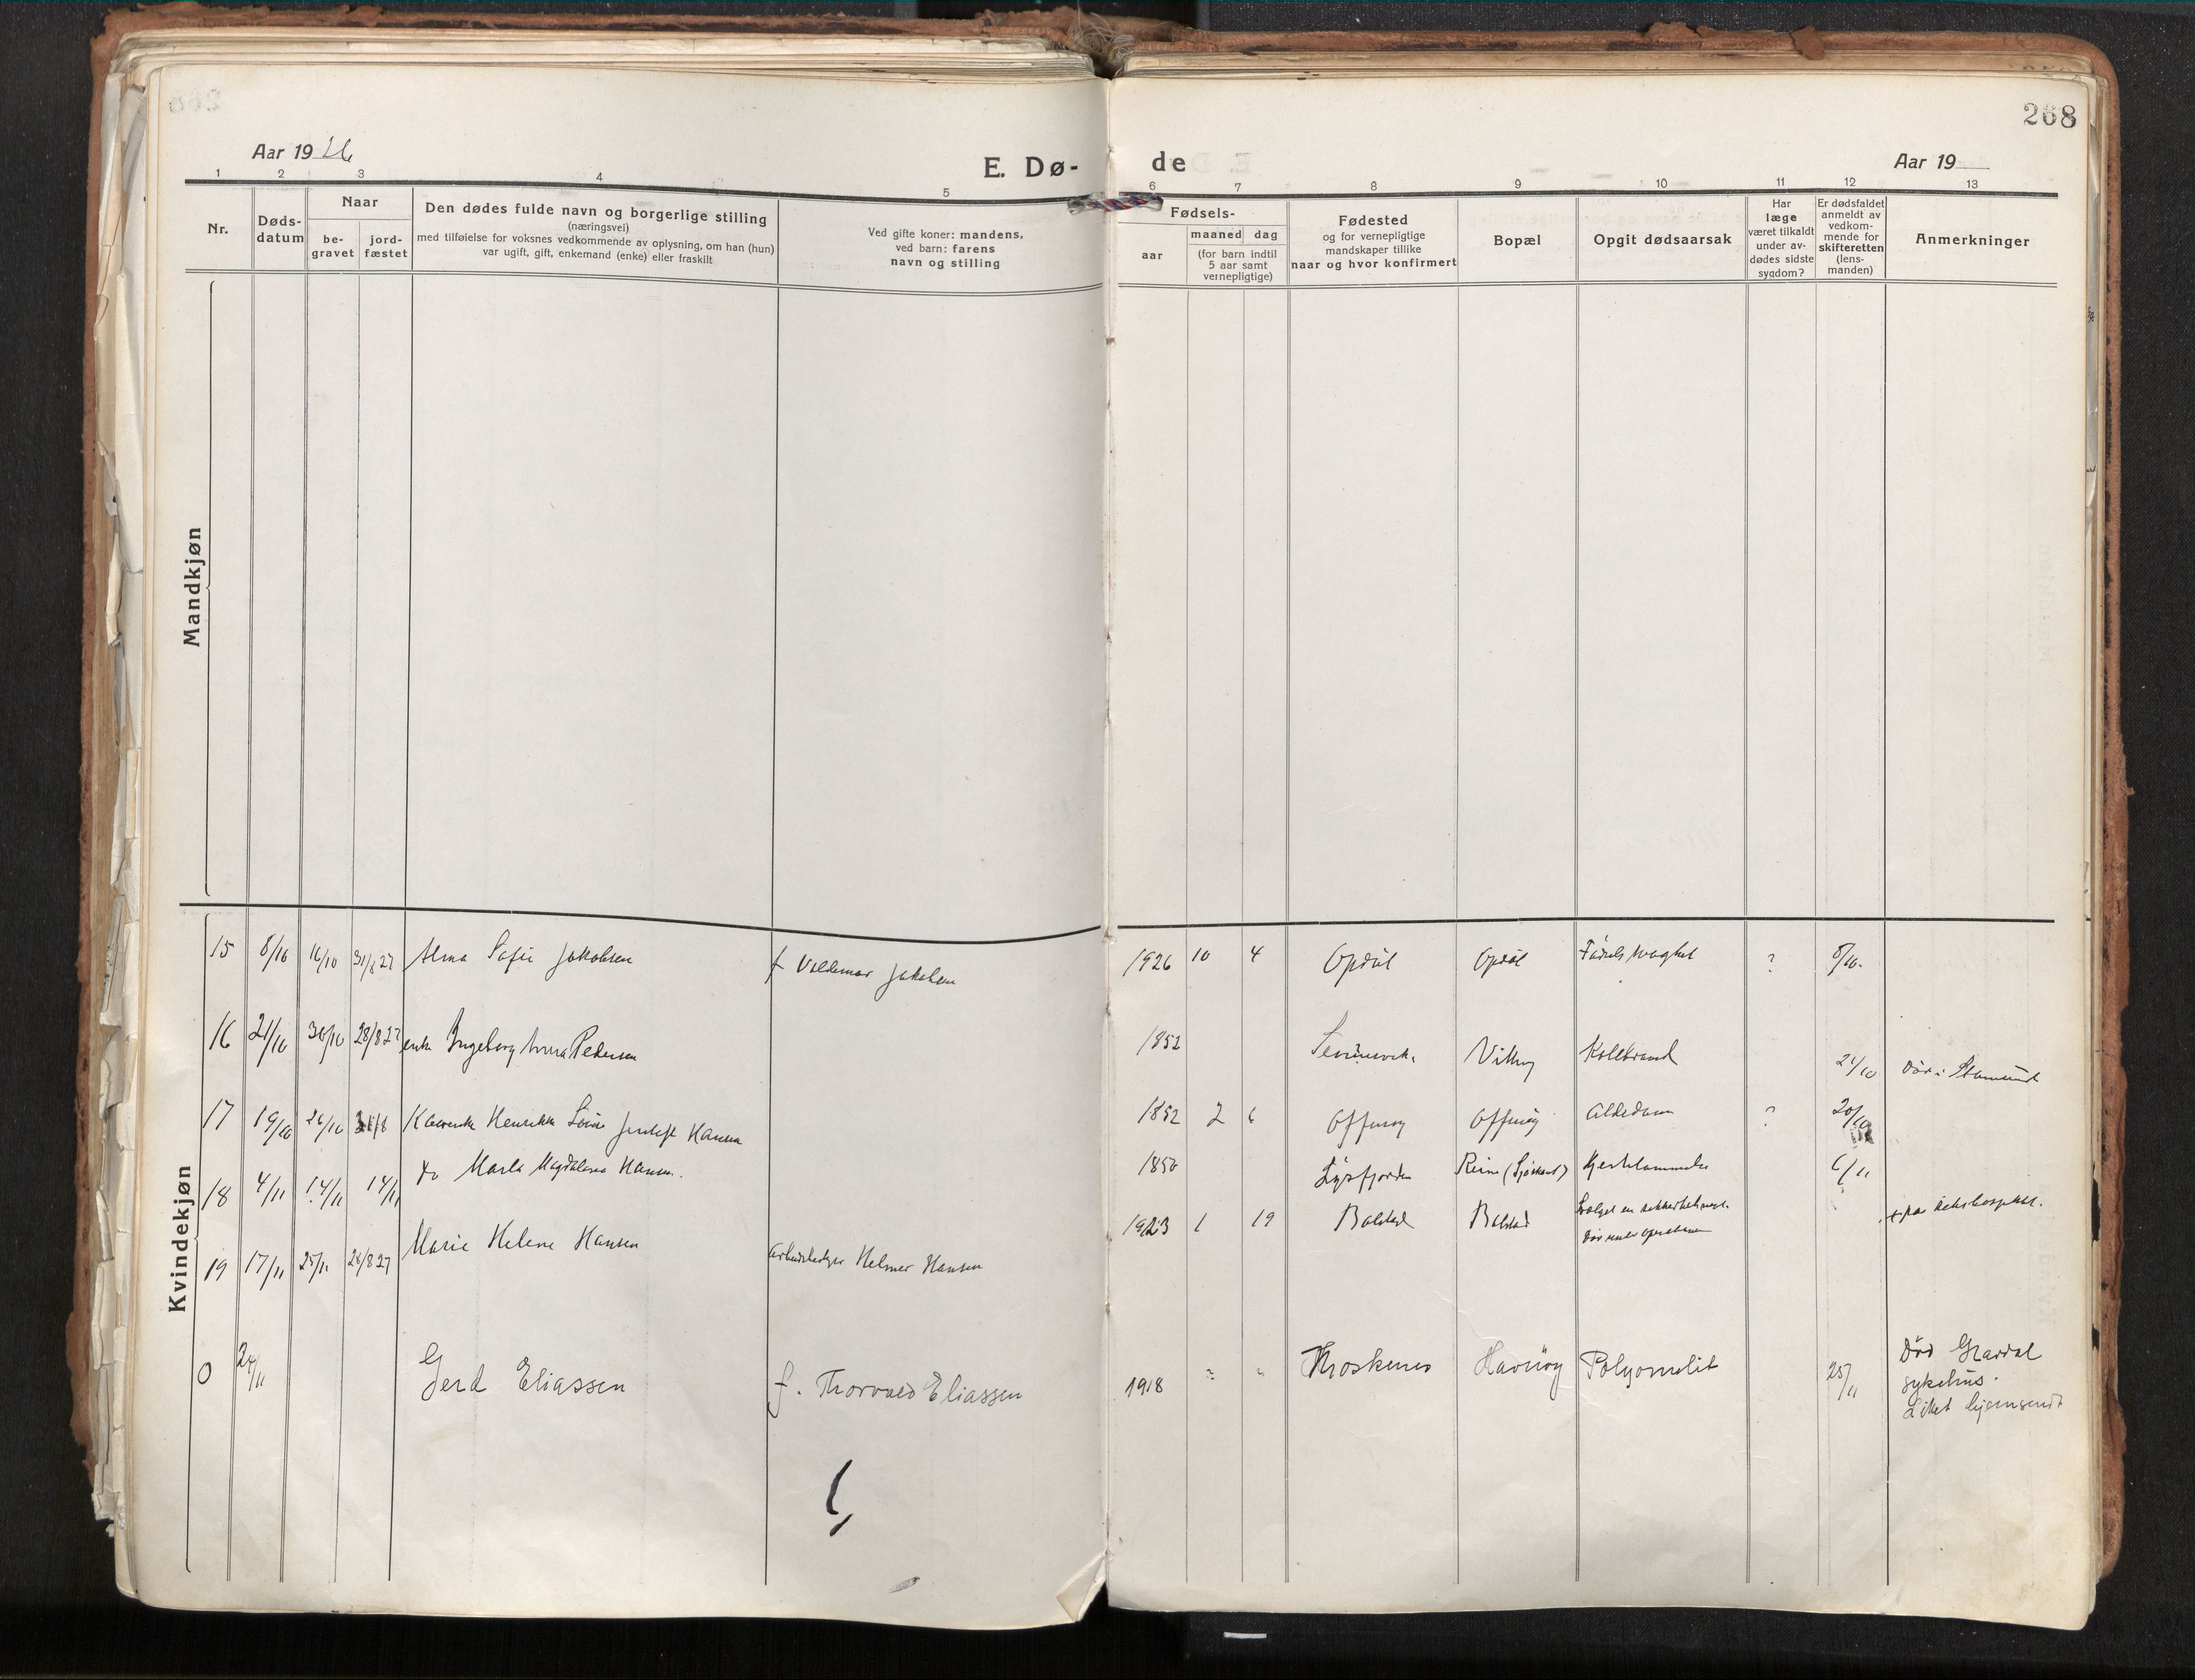 268
Aar 19 26
E. Dø-
de
Aar 19
1 2 3 4 5 6 7 8 9 10 11 12 13
Nr.
Døds-
datum
Naar
be-
gravet
jord-
fæstet
Den dødes fulde navn og borgerlige stilling
(næringsvei)
med tilføielse for voksnes vedkommende av oplysning, om han (hun)
var ugift, gift, enkemand (enke) eller fraskilt
Ved gifte koner: mandens,
ved barn: farens
navn og stilling
Fødsels-
aar
maaned dag
(for barn indtil
5 aar samt
vernepligtige)
Fødested
og for vernepligtige
mandskaper tillike
naar og hvor konfirmert
Bopæl
Opgit dødsaarsak
Har
læge
været tilkaldt
under av-
dødes sidste
sygdom?
Er dødsfaldet
anmeldt av
vedkom-
mende for
skifteretten
(lens-
manden)
Anmerkninger
Mandkjøn
Kvindekjøn
15 8/10 16/10 31/8 27 Alma Sofie Jakobsen f Valdemar Jakobsen 1926 10 4 Opdøl Opdøl ? 8/10.
16 21/10 30/10 28/8 27 enke Ingeborg Anna Pedersen 1852 Koldbrand 21/10 Død i Stamsund
17 19/10 26/10 Henrikke Hansen 1852 2 6 Offersøy Offersøy Alderdom ? 20/10
18 4/11 14/11 14/11 do Magdalena Hansen. 1850 Reine 6/11
19 17/11 25/11 28/8 27 Marie Helene Hansen Helmer Hansen 1923 1 19 Balstad Balstad
Død under operationen
0 24/11 Gerd Eliassen f. Thorvald Eliassen 1918 " " Moskenes Havnøy Polyomelit 25/11 Død Gravdal
sykehus.
Liket hjemsendt